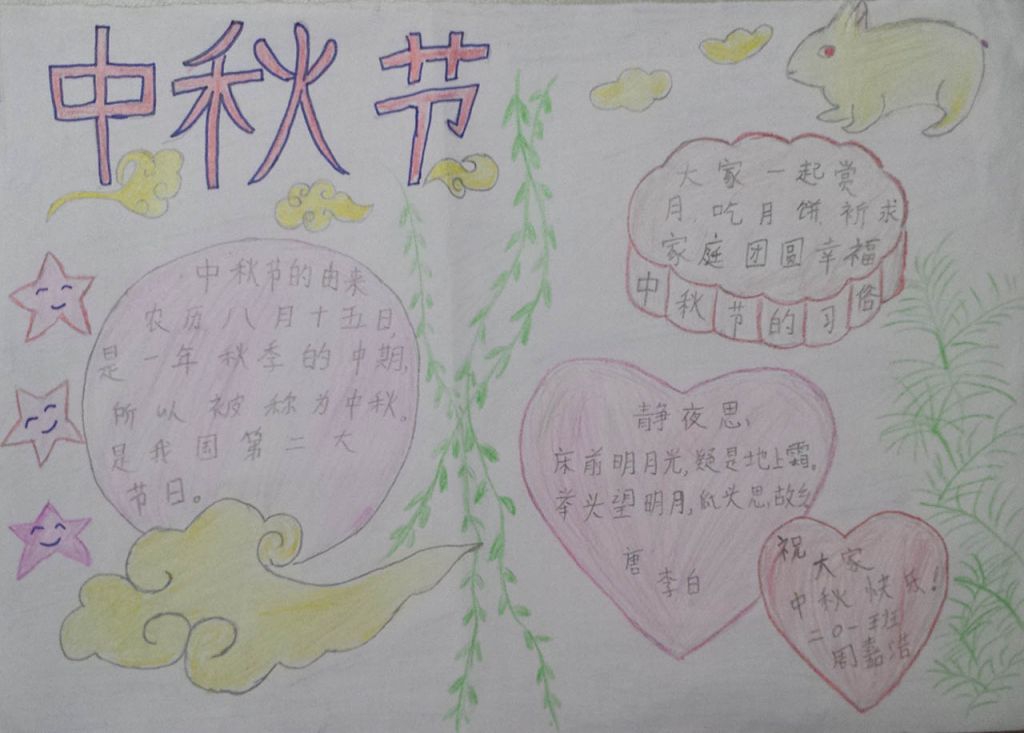 中秋节
中秋节的由来
农历八月十五日,
是一年秋季的中期,
所以被称为中秋。
是我国第二大
节日。
大家一起赏
月,吃月饼祈求
家庭团圆幸福
中秋节的习俗
静夜思,
床前明月光,疑是地上霜。
举头望明月,低头思故乡
唐
李白
祝
大家
中秋快乐!
二〇一班
周嘉浩